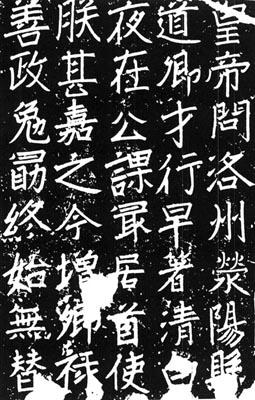 皇帝問洛州滎陽縣
道卿才行早著清白
夜在公課冣居首使
朕甚嘉之今增卿
善政勉勗終始無替